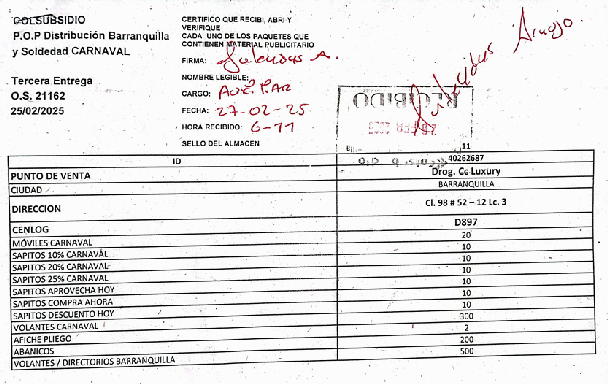 COLSUBSIDIO
P.O.P Distribución Barranquilla
y Soldedad CARNAVAL
Tercera Entrega
O.S. 21162
25/02/2025
CERTIFICO QUE RECIBI, ABRI Y
VERIFIQUE
CADA UNO DE LOS PAQUETES QUE
CONTIENEN MATERIAL PUBLICITARIO
FIRMA:
NOMBRE LEGIBLE:
CARGO: AUX FAR
FECHA: 27-02-25
HORA RECIBIDO: 6-11
SELLO DEL ALMACEN
RECIBIDO
11
ID 40262687
PUNTO DE VENTA Drog. Cc Luxury
CIUDAD BARRANQUILLA
DIRECCION Cl. 98 # 52 – 12 Lc. 3
CENLOG D897
MÓVILES CARNAVAL 20
SAPITOS 10% CARNAVAL 10
SAPITOS 20% CARNAVAL 10
SAPITOS 25% CARNAVAL 10
SAPITOS APROVECHA HOY 10
SAPITOS COMPRA AHORA 10
SAPITOS DESCUENTO HOY 10
VOLANTES CARNAVAL 300
AFICHE PLIEGO 2
ABANICOS 200
VOLANTES / DIRECTORIOS BARRANQUILLA 500